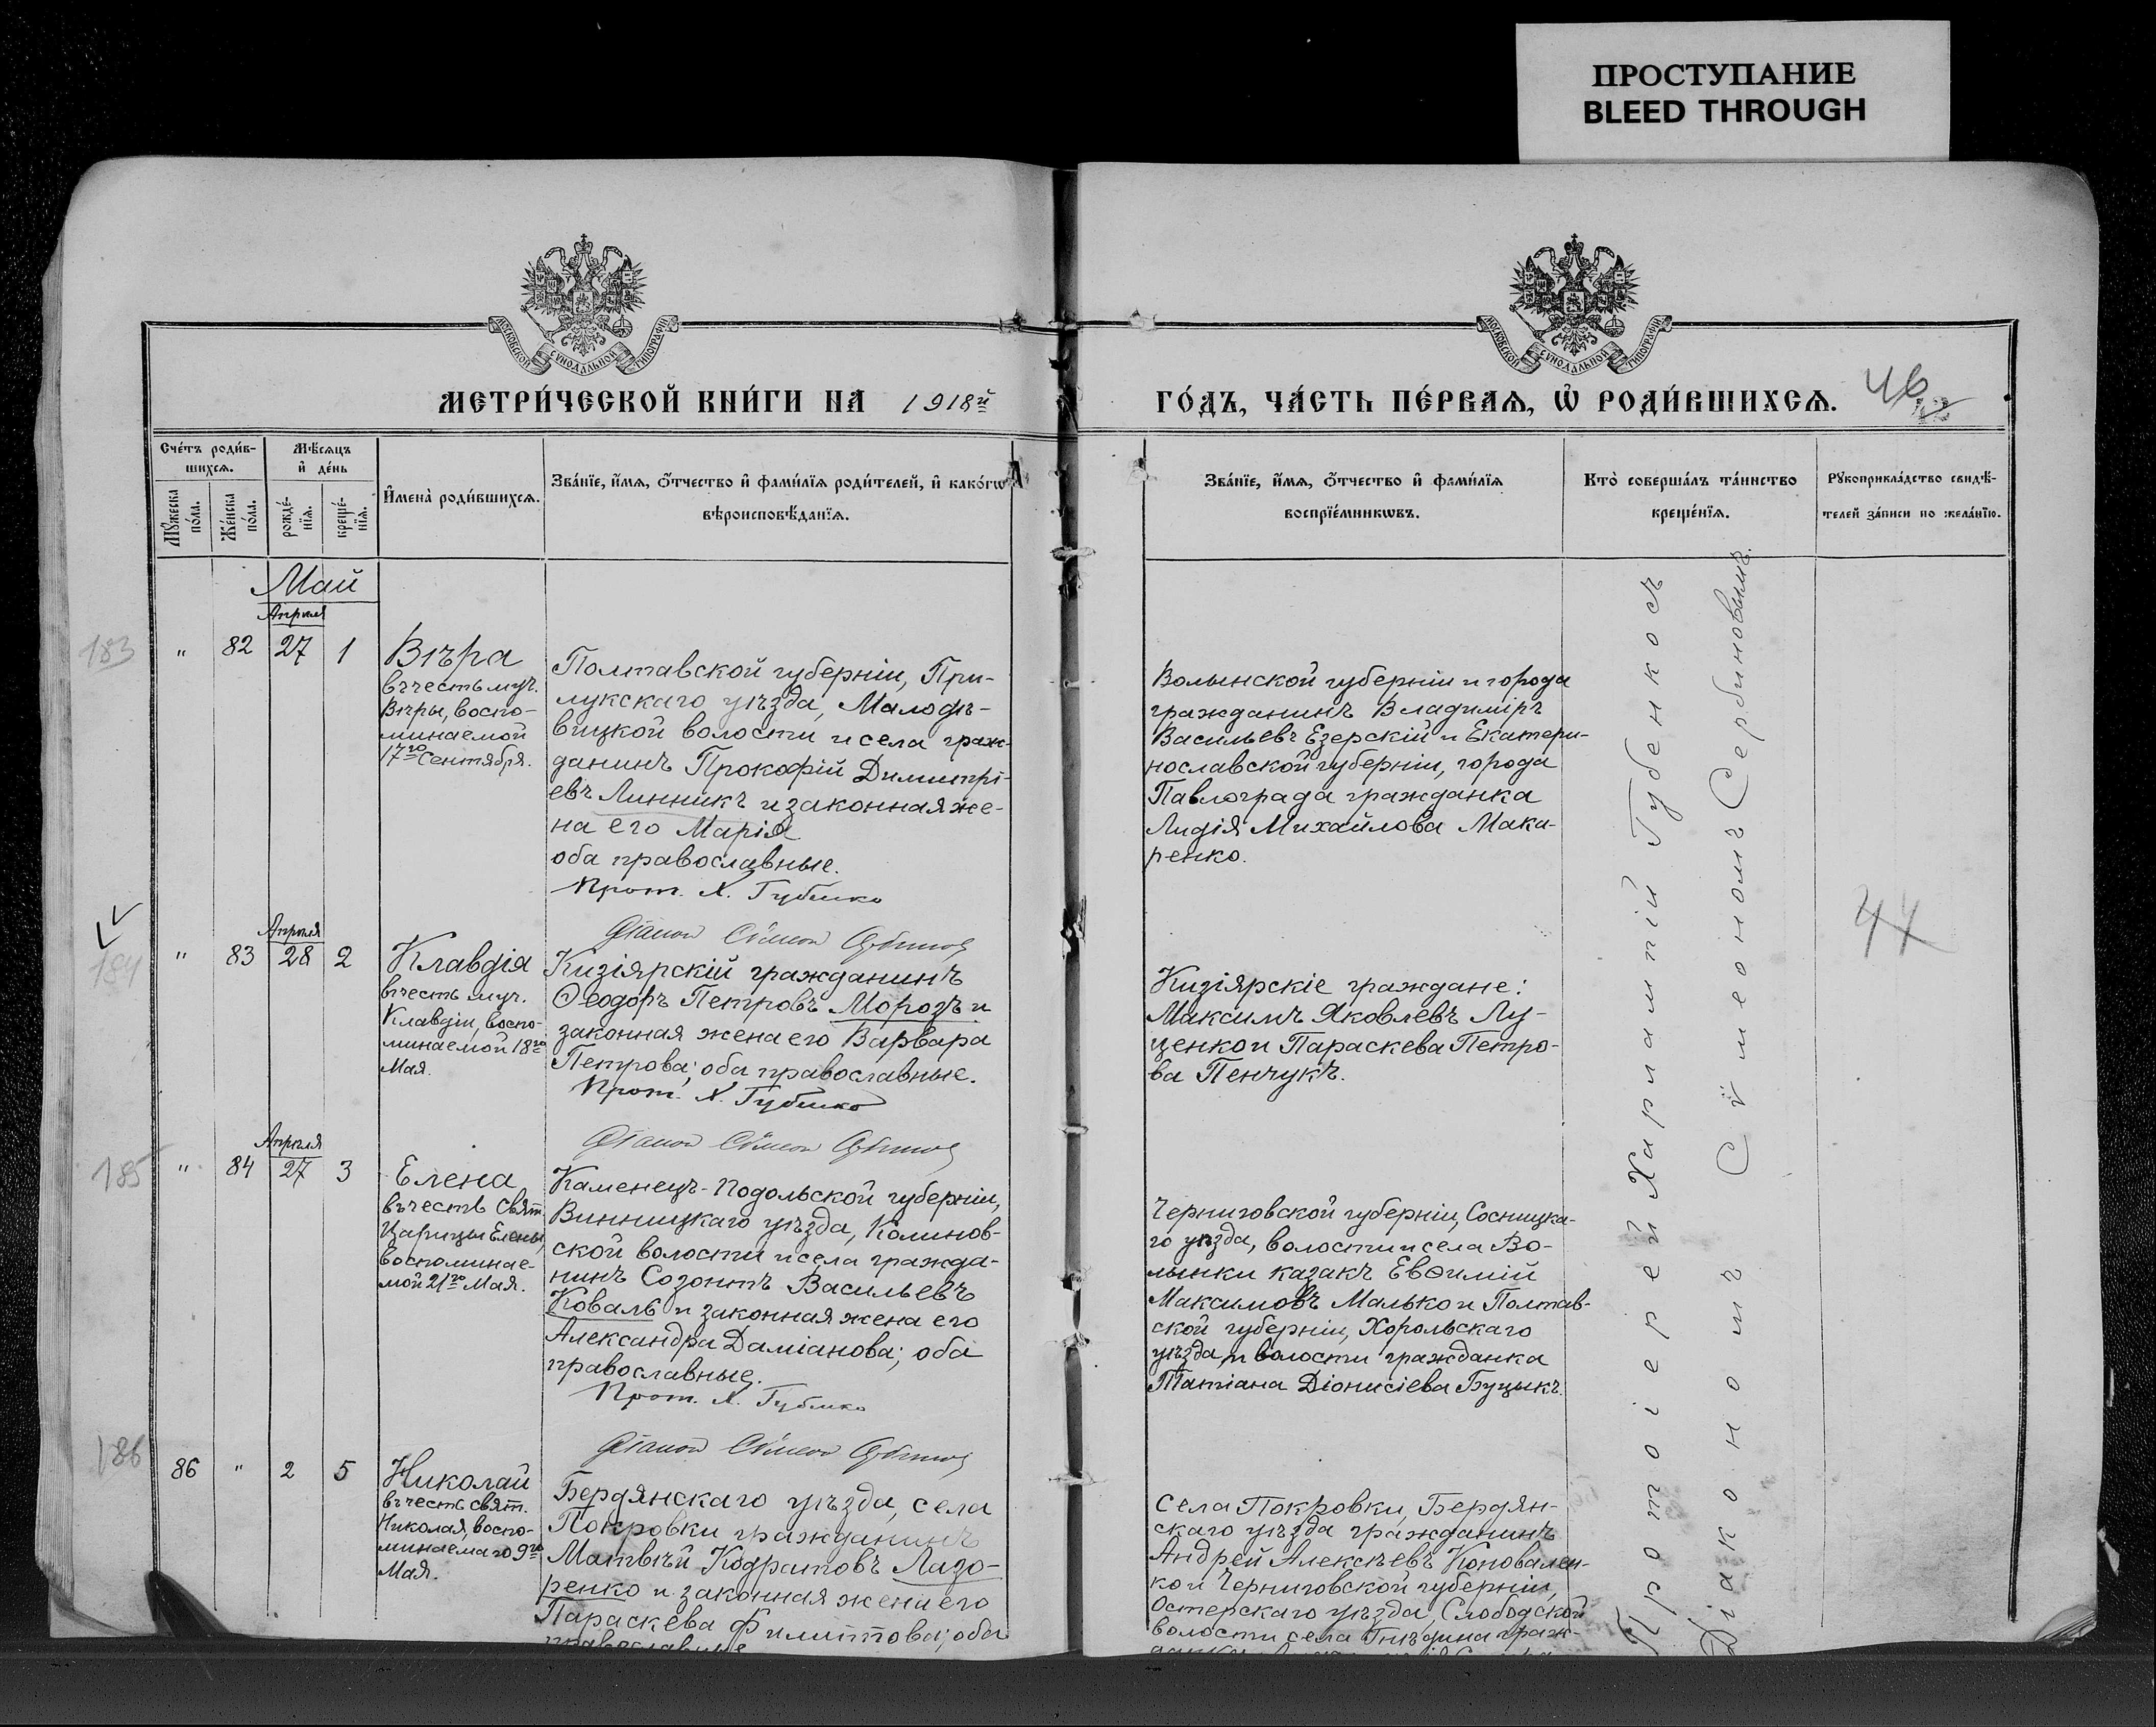 ПРОСТУПАНИЕ
BLEED THROUGH
МОСКОВСКОЙ СѴНОДАЛЬНОЙ ТИПОГРАФІИ
МОСКОВСКОЙ СѴНОДАЛЬНОЙ ТИПОГРАФІИ
МЕТРИ́ЧЕСКОЙ КНИ́ГИ НА 1918й
ГО́ДЪ, ЧА́СТЬ ПЕ́РВАѦ, Ѽ РОДИ́ВШИХСѦ.
46
Сче́тъ роди́в-
шихсѧ.
Мѣ́сѧцъ
и҆ де́нь
Мꙋ́жеска
по́ла.
Же́нска
по́ла.
рожде́-
нїѧ.
креще́-
нїѧ.
И҆мена̀ роди́вшихсѧ.
Зва́нїе, и҆́мѧ, ѻ҆́тчество и҆ фами́лїѧ роди́телей, и҆ како́гѡ
вѣроисповѣ́данїѧ.
Зва́нїе, и҆́мѧ, ѻ҆́тчество и҆ фами́лїѧ
воспрїе́мникѡвъ.
Кто̀ соверша́лъ та́инство
креще́нїѧ.
Рꙋкоприкла́дство свидѣ́-
телей за́писи по жела́нїю.
Май
Апрѣля
183 " 82 27 1
Вѣра
въ честь муч.
Вѣры, воспо-
минаемой
17го Сентября.
Полтавской губерніи, При-
лукскаго уѣзда, Малодѣ-
вицкой волости и села граж-
данинъ Прокофій Димитрі-
евъ Линникъ и законная же-
на его Марія
оба православные.
Прот. Х. Губенко
Діаконъ Сѵмеонъ Сербиновъ
Волынской губерніи и города
гражданинъ Владиміръ
Васильевъ Езерскій и Екатери-
нославской губерніи, города
Павлограда гражданка
Лидія Михайлова Мака-
ренко.
Апрѣля
184 " 83 28 2
Клавдія
въ честь муч.
Клавдіи, воспо-
минаемой 18го
Мая.
Кизіярскій гражданинъ
Ѳеодоръ Петровъ Морозъ и
законная жена его Варвара
Петрова; оба православные.
Прот. Х. Губенко
Діаконъ Сѵмеонъ Сербиновъ
Кизіярскіе граждане:
Максимъ Яковлевъ Лу-
ценко и Параскева Петро-
ва Пенчукъ.
44
Апрѣля
185 " 84 27 3
Елена
въ честь свят.
Царицы Елены,
воспоминае-
мой 21го Мая.
Каменецъ-Подольской губерніи,
Винницкаго уѣзда, Калинов-
ской волости и села гражда-
нинъ Созонтъ Васильевъ
Коваль и законная жена его
Александра Даміанова; оба
православные.
Прот. Х. Губенко
Діаконъ Сѵмеонъ Сербиновъ
Черниговской губерніи, Сосницка-
го уѣзда, волости и села Во-
лынки казакъ Евѳимій
Максимовъ Малько и Полтав-
ской губерніи, Хорольскаго
уѣзда, и волости гражданка
Татіана Діонисіева Буцыкъ.
186 86 " 2 5
Николай
въ честь свят.
Николая, воспо-
минаемаго 9го
Мая.
Бердянскаго уѣзда, села
Покровки гражданинъ
Матвѣй Кодратовъ Лазо-
ренко и законная жена его
Параскева Филиппова; оба
православные
села Покровки, Бердян-
скаго уѣзда гражданинъ
Андрей Алексѣевъ Коновален-
ко и Черниговской губерніи,
Остерскаго уѣзда, Слободской
волости села Гнѣдина граж-
Протоіерей Харлампій Губенко съ
Діакономъ Сѵмеономъ Сербиновымъ.